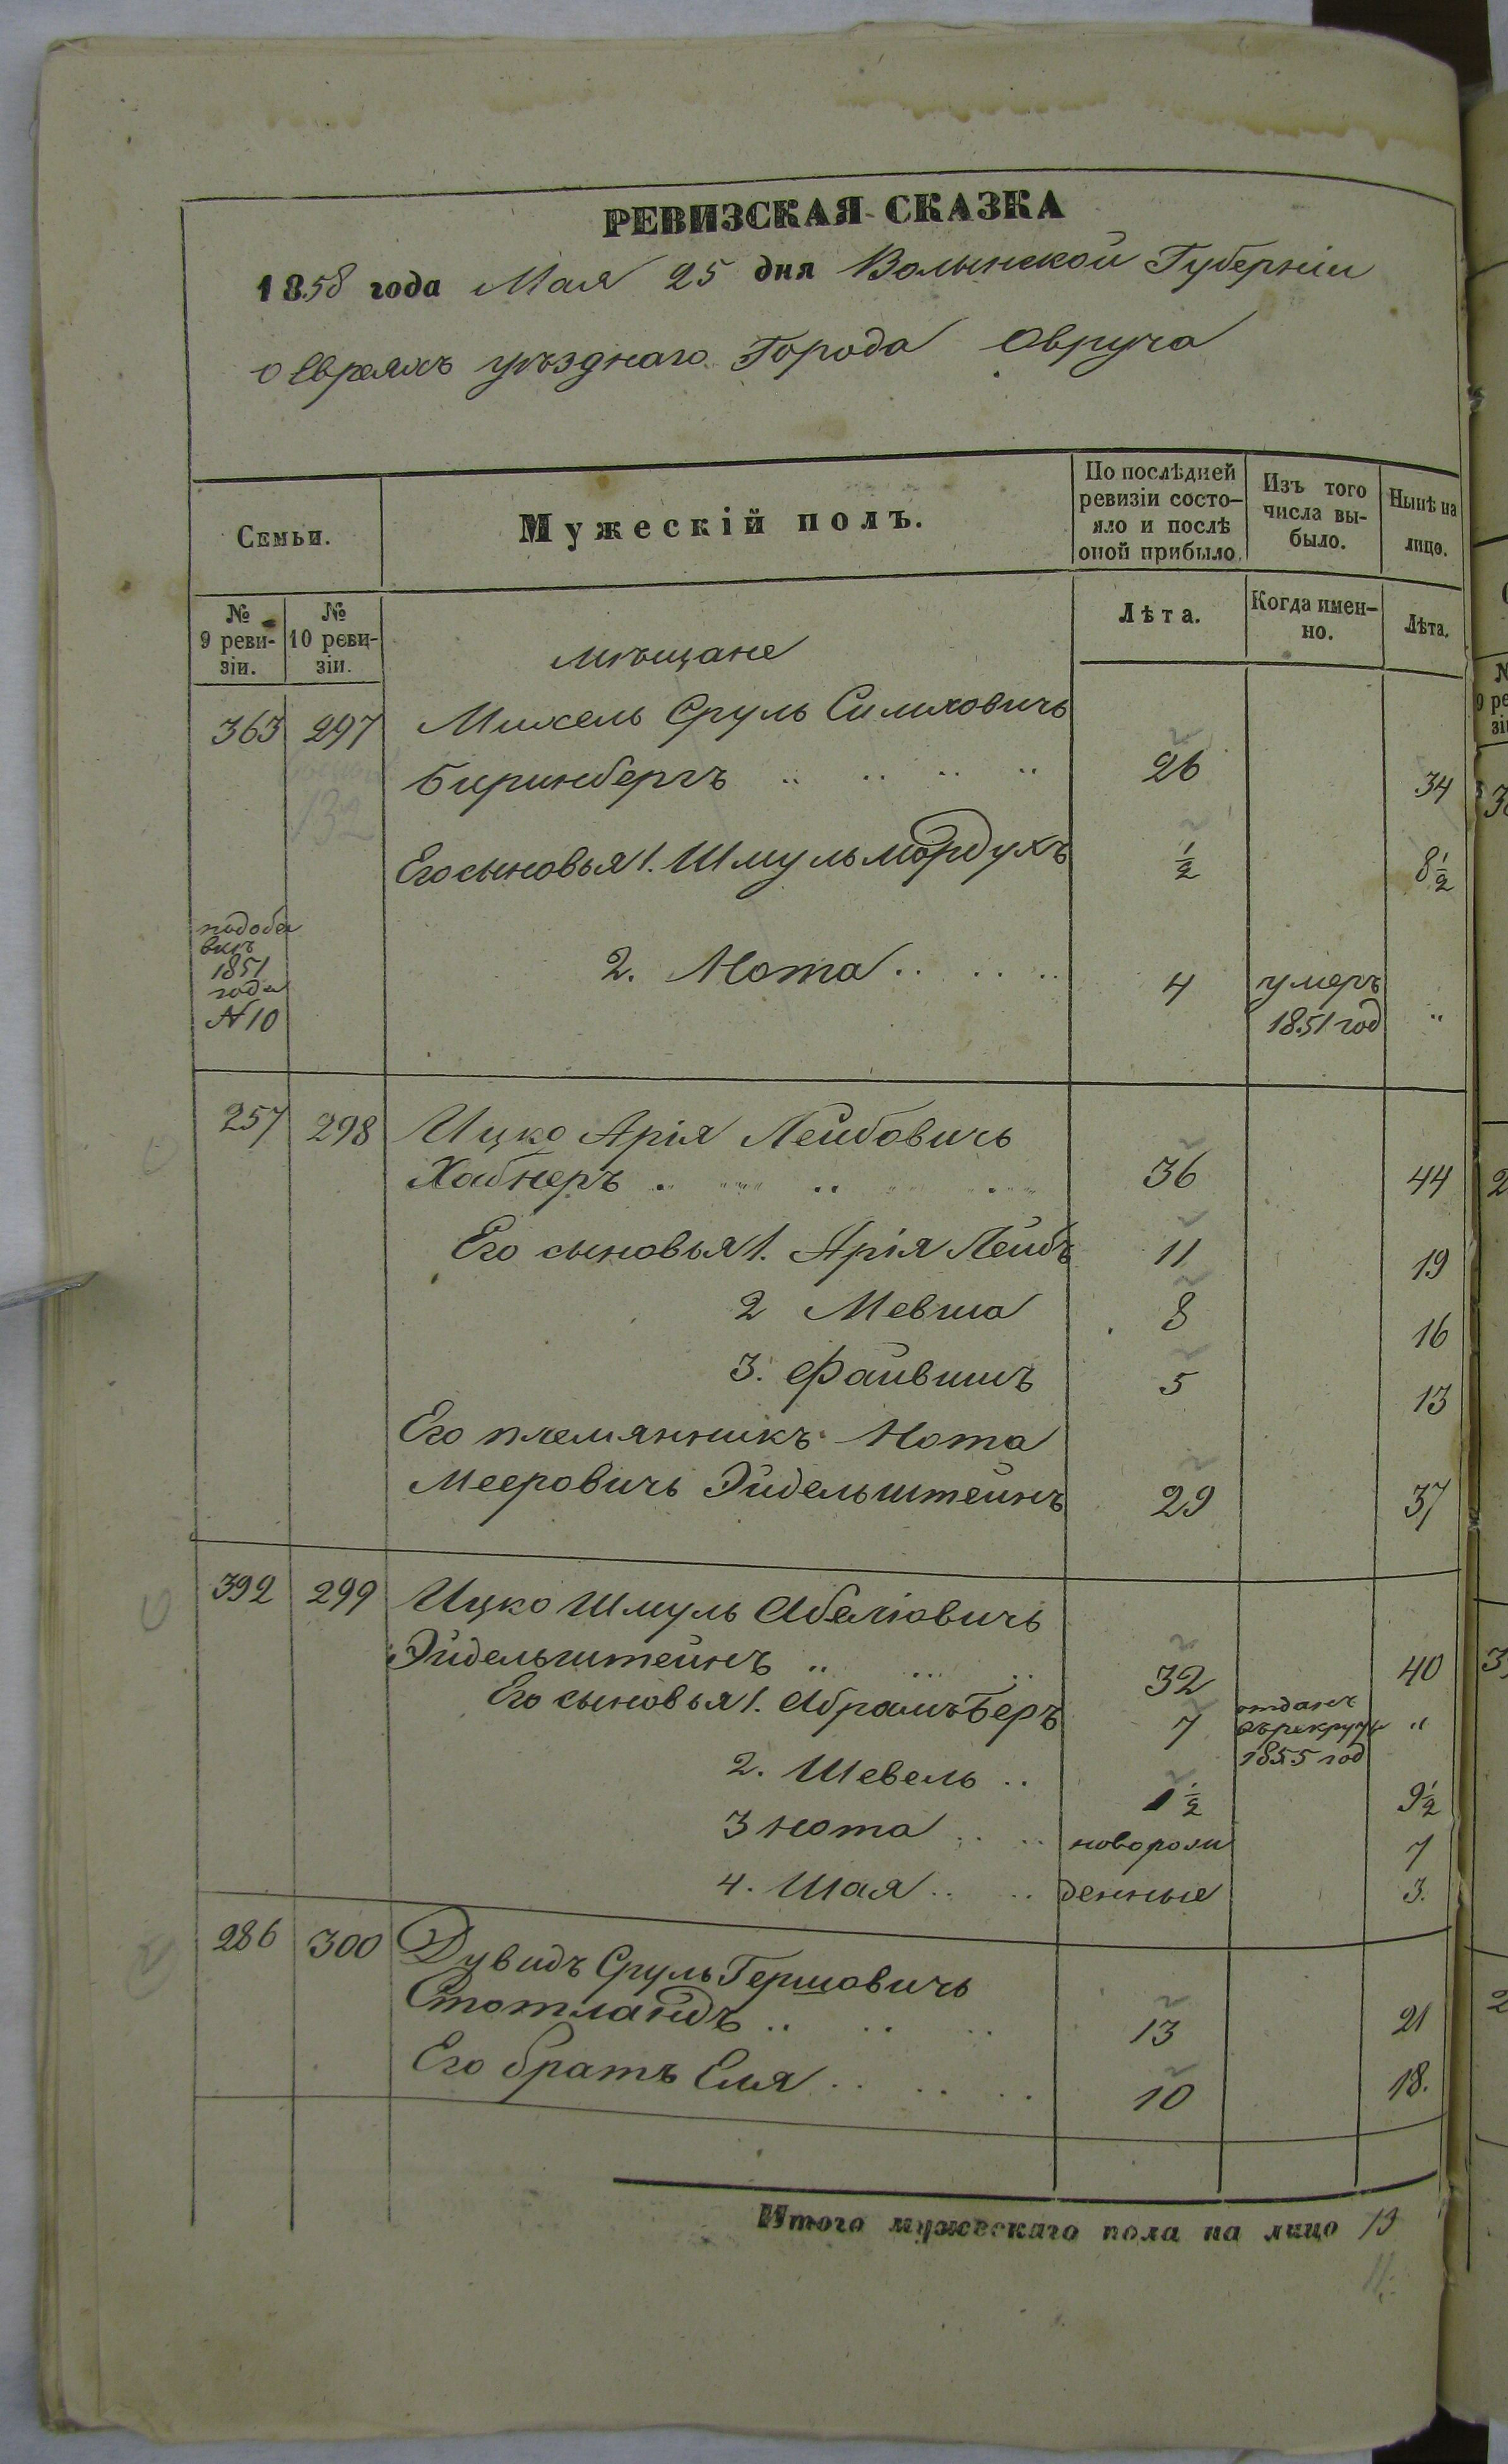 РЕВИЗСКАЯ СКАЗКА
1858 года Мая 25 дня Волынской Губерніи
о Евреяхъ уѣзднаго Города Овруча
Семьи.
Мужескій полъ.
По послѣдней ревизіи состо-
яло и послѣ оной прибыло.
Изъ того числа вы-
было.
Нынѣ на лицо.
№ 9 реви-
зіи.
№ 10 реви-
зіи.
Лѣта.
Когда имен-
но.
Лѣта.
мѣщане
363 297 Михель Сруль Симховичь
Биринбергъ 26 34
Его сыновья 1. Шмуль Мордухъ ½ 8½
1851
года
№ 10
2. Нота 4 умеръ 1851 год "
257 298 Ицко Арія Лейбовичь
Хабнеръ 36 44
Его сыновья 1. Арія Лейбъ 11 19
2 Мевша 8 16
3. Файвишъ 5 13
Его племянникъ Нота
Мееровичь Эйдельштейнъ 29 37
392 299 Ицко Шмуль Абеліовичь
Эйдельштейнъ 32 40
Его сыновья 1. Абрамъ Беръ 7 отданъ въ рекруты 1855 год "
2. Шевель 1½ 9½
3 Нота новорож 7
4. Шая денные 3.
286 300 Дувидъ Сруль Гершовичь
Стотландъ 13 21
Его братъ Еля 10 18.
Итого мужескаго пола на лицо 13